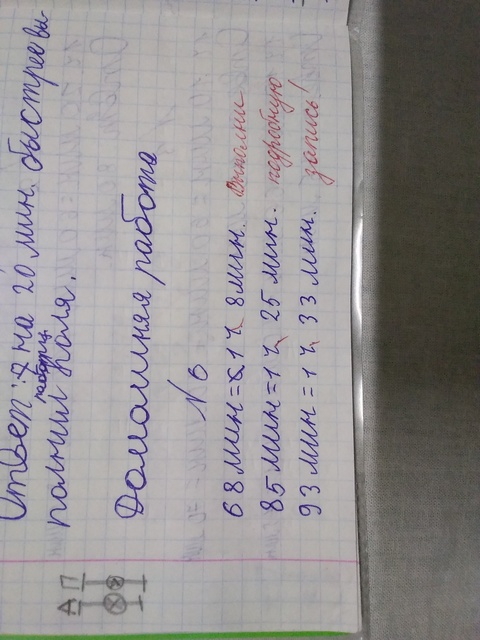 Ответ: на 20 мин. быстрее вы-
работу
полнил Коля.
Домашняя работа
N 6
68 мин = 1 ч 8 мин. Выполни
85 мин = 1 ч 25 мин. подробную
93 мин = 1 ч 33 мин. запись!
А П